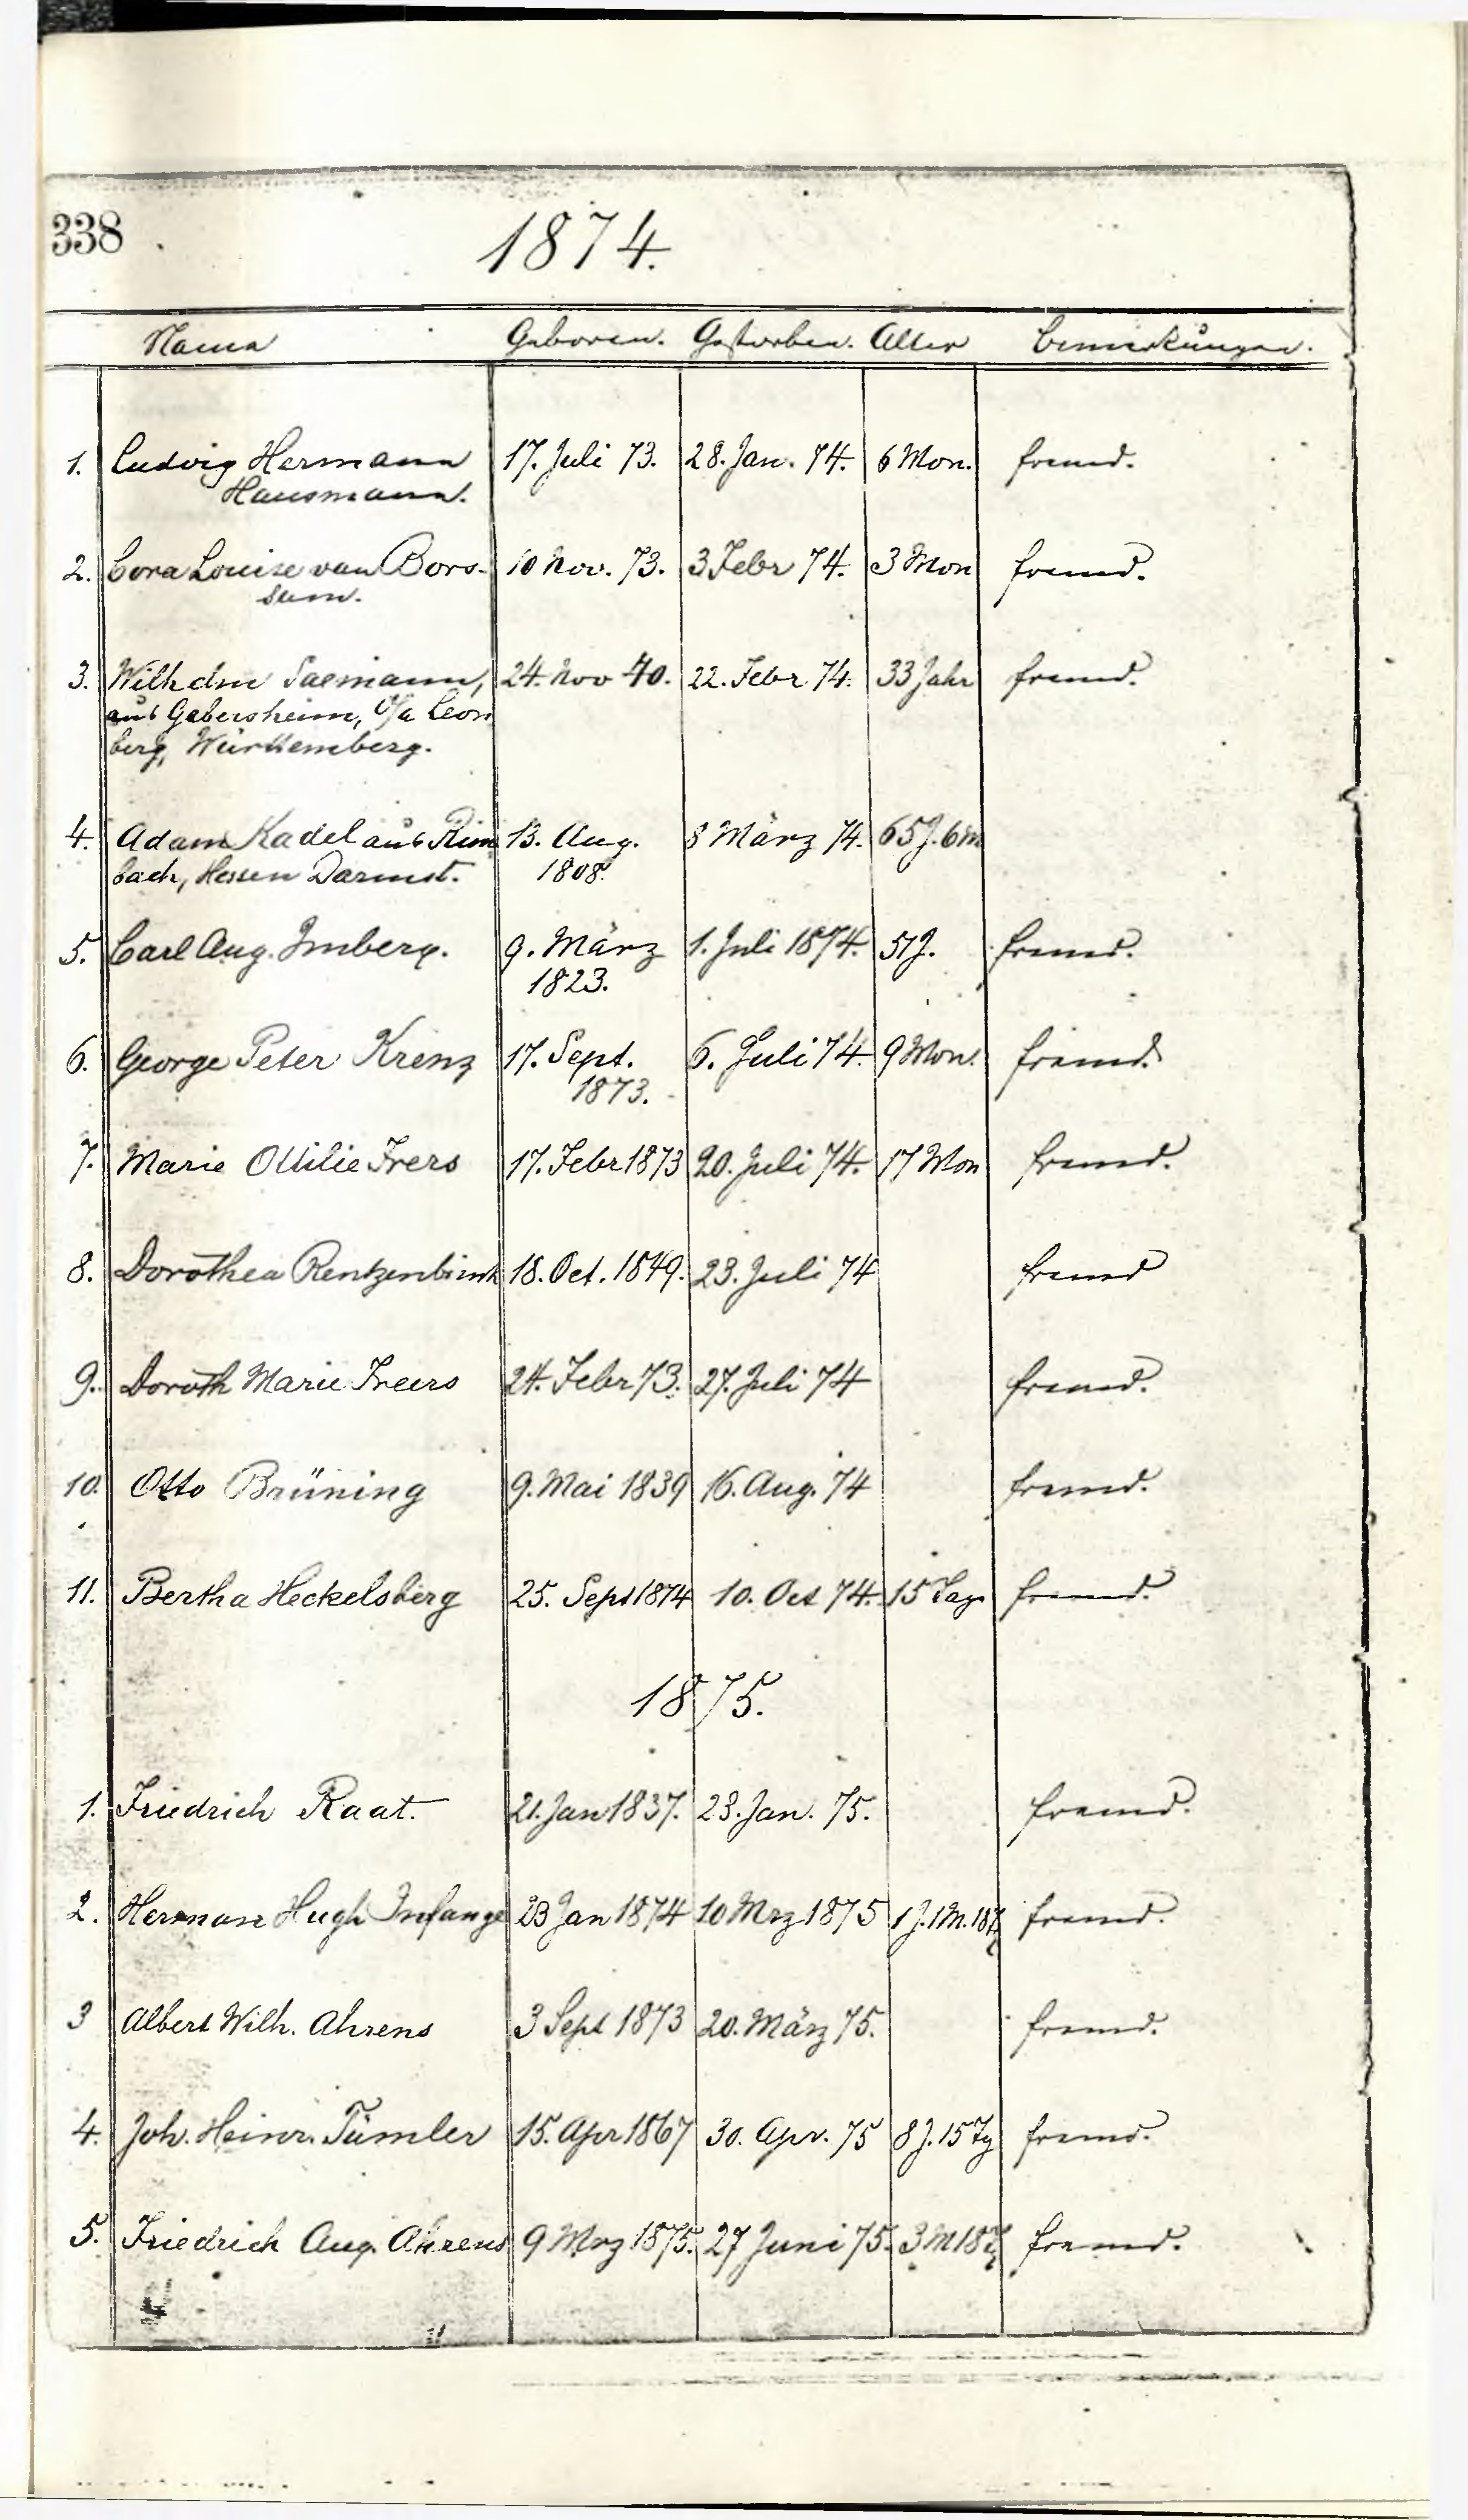 338
1874.
Name Geboren. Gestorben. Alter Bemerkungen.
1. Ludwig Hermann 17. Juli 73. 28. Jan. 74. 6 Mon. fremd.
Hausmann.
2. Cora Louise van Bors- 10 Nov. 73. 3 Febr 74. 3 Mon fremd.
sum.
3. Wilhelm Saemann, 24. Nov 40. 22. Febr. 74. 33 Jahr fremd.
aus Gebersheim, O/a Leon
berg, Württemberg.
4. Adam Kadel aus Rim 13. Aug. 8 März 74. 65 J. 6 m
bach, Hessen Darmst. 1808.
5. Carl Aug. Imberg. 9. März 1. Juli 1874. 51 J. fremd.
1823.
6. George Peter Krenz 17. Sept. 6. Juli 74. 9 Mon. fremd.
1873.
7. Marie Ottilie Frers 17. Febr 1873 20. Juli 74. 17 Mon fremd.
8. Dorothea Rentzenbrink 18. Oct. 1849. 23. Juli 74 fremd
9. Doroth Marie Freers 24. Febr 73. 27. Juli 74 fremd.
10. Otto Brüning 9. Mai 1839 16. Aug. 74 fremd.
11. Bertha Heckelsberg 25. Sept 1874 10. Oct 74. 15 Tage fremd.
1875.
1. Friedrich Raat. 21. Jan 1837. 23. Jan. 75. fremd.
2. Herman Hugh 23 Jan 1874 10 Mrz 1875 1 J. 1 M. 18 fremd.
3 Albert Wilh. Ahrens 3 Sept 1873 20. März 75. fremd.
4. Joh. Heinr. Tümler 15. Apr 1867 30. Apr. 75 8 J. 15 Tg fremd.
5. Friedrich Aug. Ahrens 9 Mrz 1875. 27 Juni 75. 3 M 18 fremd.